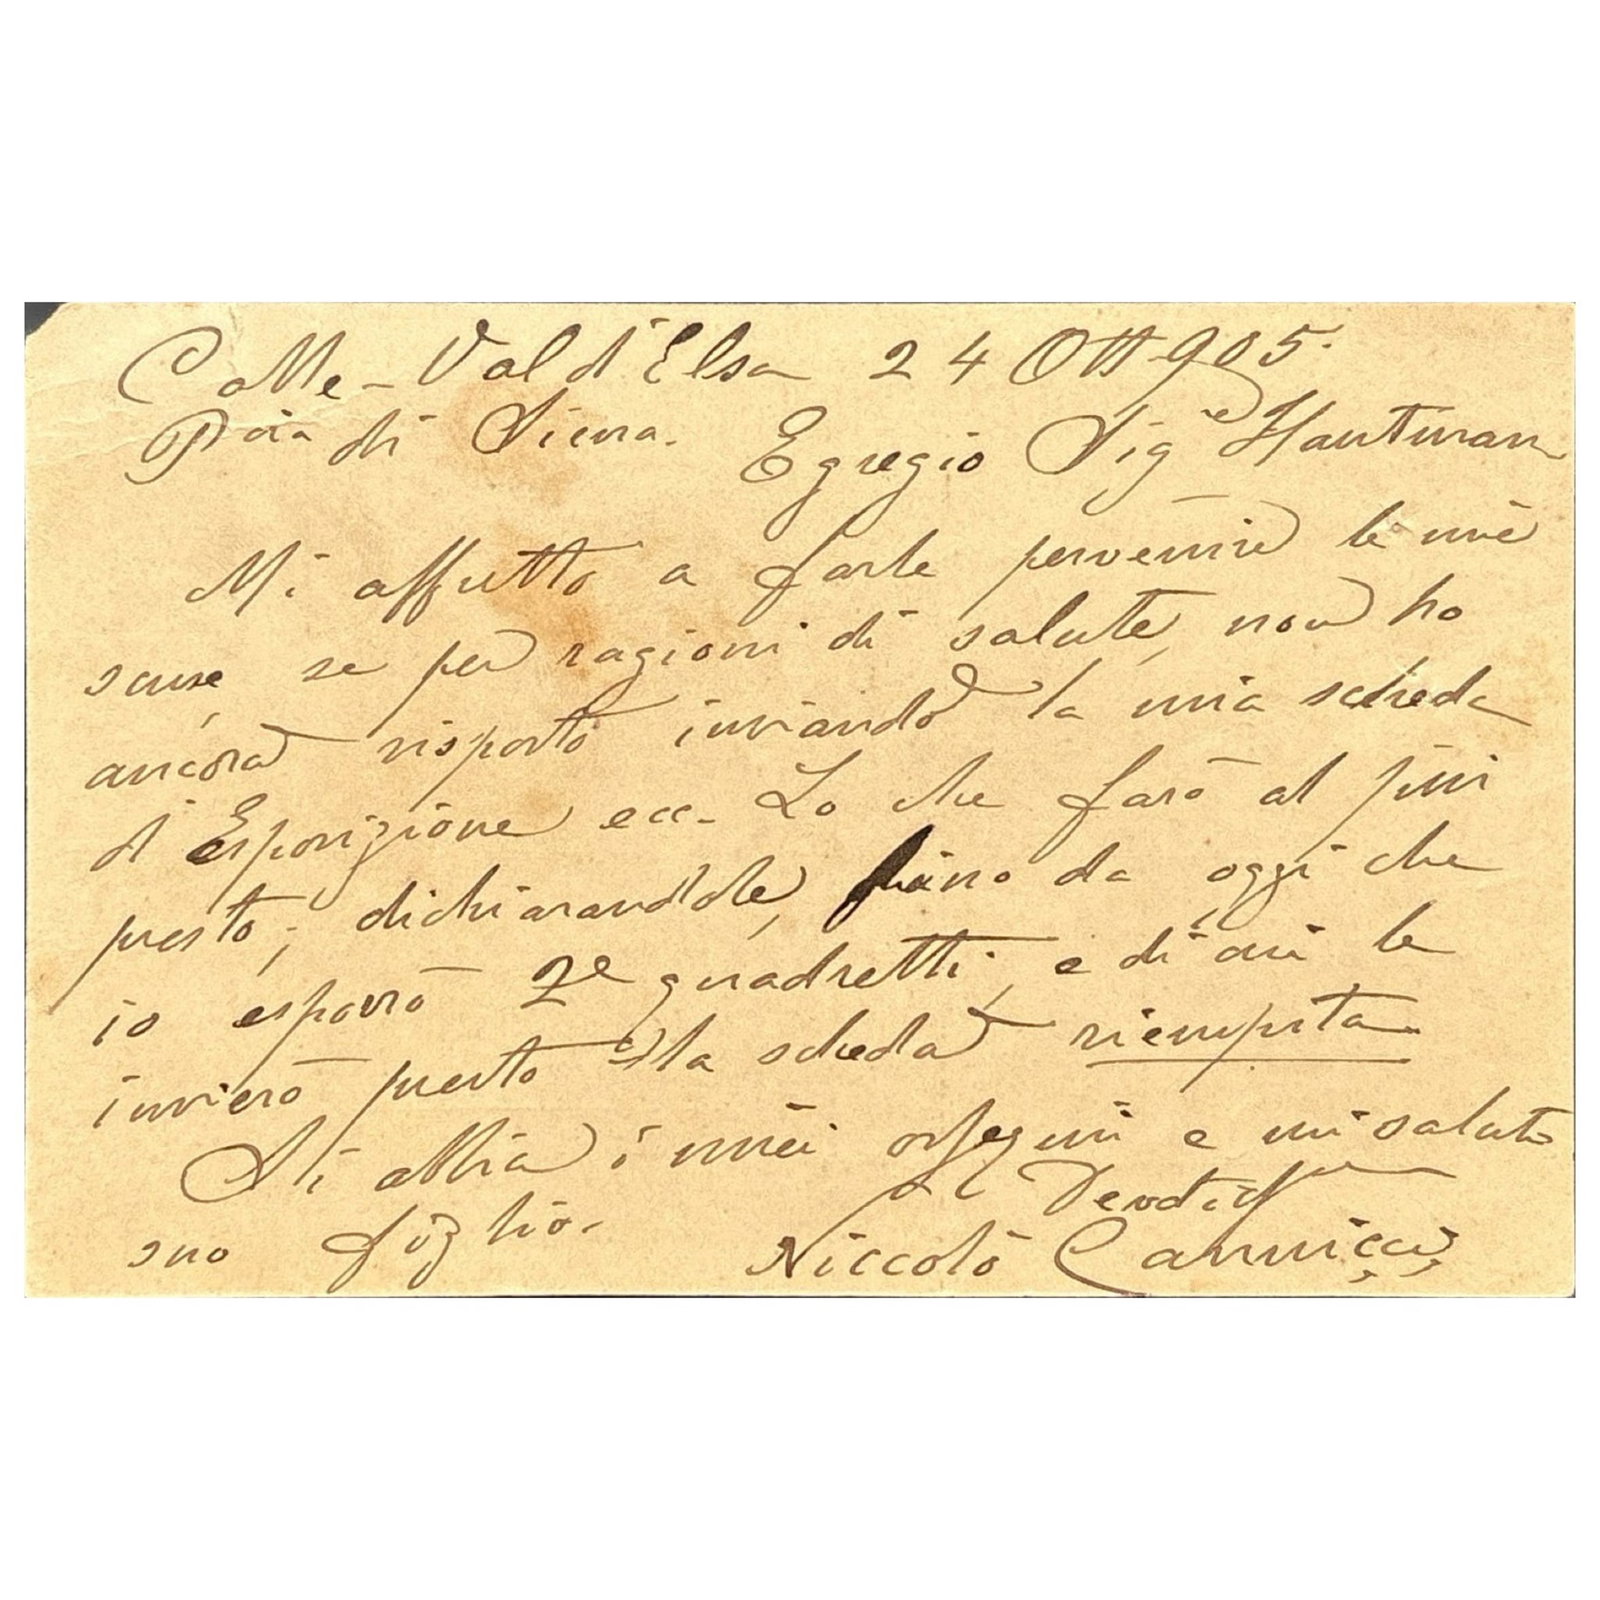 Colle-Val d'Elsa 24 Ott 905.
Pcia di Siena. Egregio Sig.re Hautman
Mi affretto a farle pervenire le mie
scuse, se per ragioni di salute, non ho
ancora risposto inviando la mia scheda
d'Esposizione ecc. Lo che farò al più
presto; dichiarandole, fino da oggi che
io esporrò 2e quadretti, e di cui le
invierò presto la scheda riempita
Si abbia i miei ossequi e mi saluti
suo figlio.-
Niccolò Cannicci